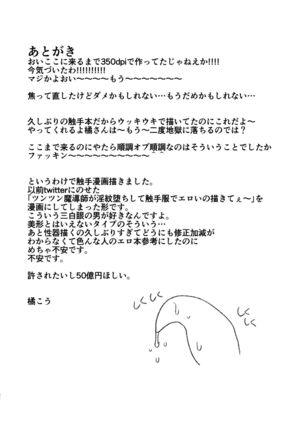 あとがき
おいここに来るまで350dpiで作ってたじゃねえか!!!!
今気づいたわ!!!!!!!!!!
マジかよおい～～～～もう～～～～～～～
焦って直したけどダメかもしれない…もうだめかもしれない…
久しぶりの触手本だからウッキウキで描いてたのにこれだよ～
やってくれるよ橘さんは～もう～二度地獄に落ちるのでは？
ここまで来るのにやたら順調オブ順調なのはそういうことでしたか
ファッキン～～～～～～～～～～
というわけで触手漫画描きました。
以前twitterにのせた
「ツンツン魔導師が淫紋堕ちして触手服でエロいの描きてぇ～」を
漫画にしてしまった形です。
こういう三白眼の男が好きなんですよ。
美形とはいえないタイプのそういう…
あと性器描くの久しぶりすぎてどうにも修正加減が
わからなくて色んな人のエロ本参考にしたのに
めちゃ不安です。
不安です。
許されたいし50億円ほしい。
橘こう